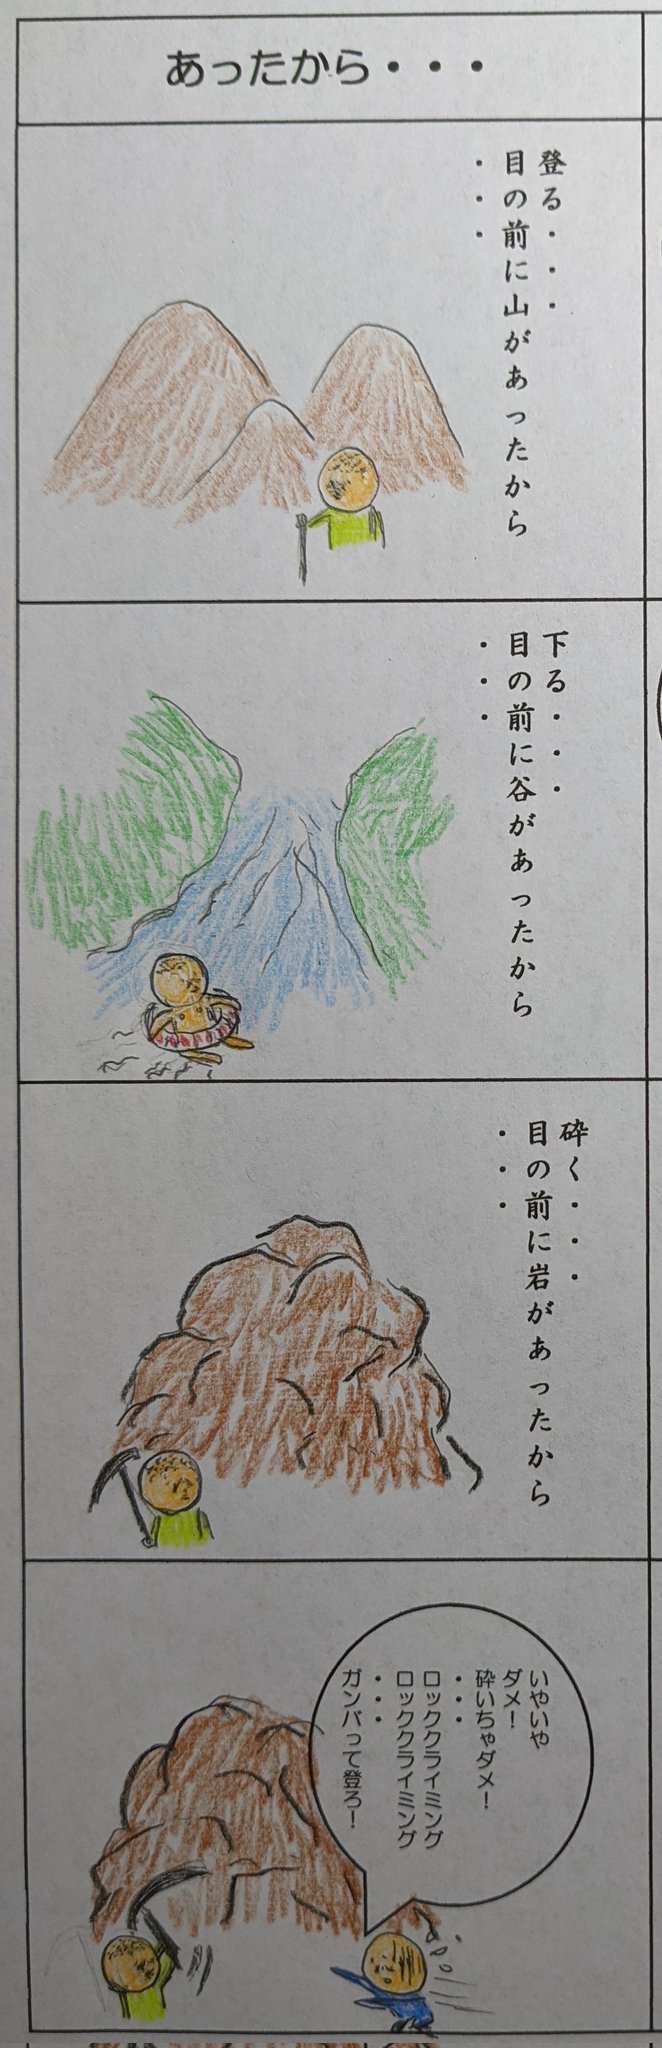 あったから・・・
登る・・・
目の前に山があったから
・・・
下る・・・
目の前に谷があったから
・・・
砕く・・・
目の前に岩があったから
・・・
いやいや
ダメ！
砕いちゃダメ！
・・・
ロッククライミング
ロッククライミング
・・・
ガンバって登ろ！